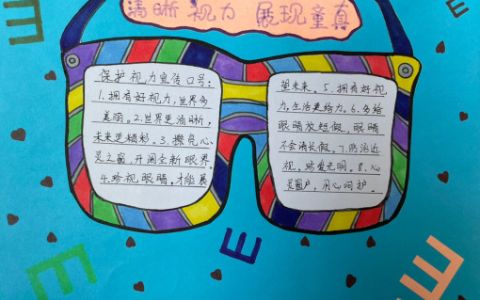 清晰视力 展现童真
保护视力宣传口号:
1.拥有好视力,世界多
美丽。2.世界更清晰,
未来更精彩。3.擦亮心
灵之窗,开阔全新眼界.
4.珍视眼睛,才能展
望未来。5.拥有好视
力,生活更给力。6.多给
眼睛放短假,眼睛
不会请长假。7.防治近
视,珍爱光明。8.心
灵窗户,用心呵护。
E
E
E
E
E